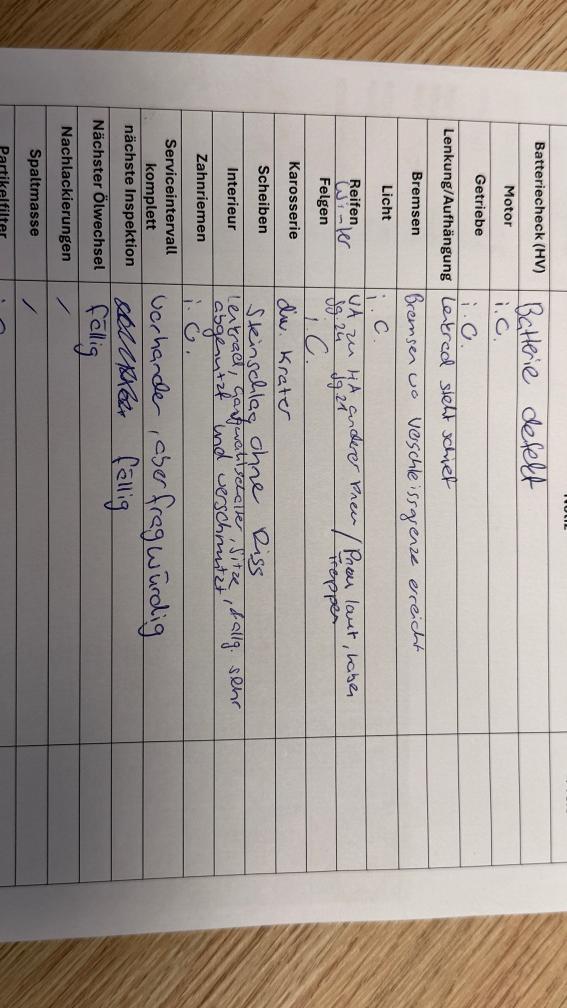 Notiz
Batteriecheck (HV) Batterie defekt
Motor i.O.
Getriebe i.O.
Lenkung/Aufhängung Lenkrad steht schief
Bremsen Bremsen VA Verschleissgrenze erreicht
Licht i.O.
Reifen Winter VA zu HA anderer Pneu / Pneu laut, haben
Jg.24 Jg.21 Treppen
Felgen i.O.
Karosserie div. Krater
Scheiben Steinschlag ohne Riss
Interieur Lenkrad, Gangwahlschalter, Sitze, & allg. sehr
abgenutzt und verschmutzt
Zahnriemen i.O.
Serviceintervall
komplett vorhanden, aber fragwürdig
nächste Inspektion fällig
Nächster Ölwechsel fällig
Nachlackierungen /
Spaltmasse /
Partikelfilter i.O.